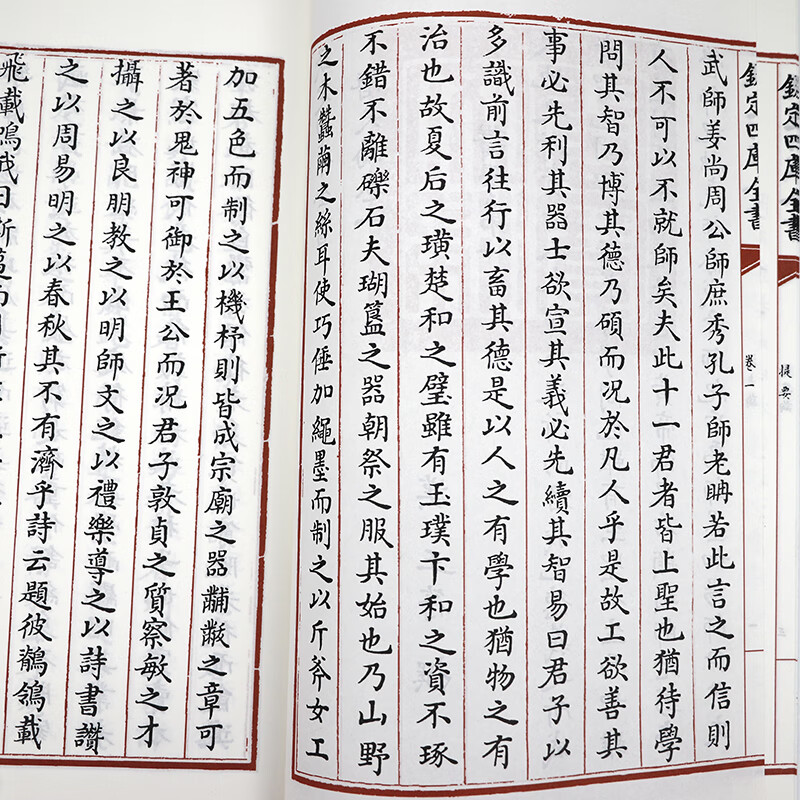 欽定四庫全書
提要
欽定四庫全書
卷一
武師姜尚周公師庶秀孔子師老聃若此言之而信則
人不可以不就師矣夫此十一君者皆上聖也猶待學
問其智乃博其德乃碩而况於凡人乎是故工欲善其
事必先利其器士欲宣其義必先續其智易曰君子以
多識前言往行以畜其德是以人之有學也猶物之有
治也故夏后之璜楚和之璧雖有玉璞卞和之資不琢
不錯不離礫石夫瑚簋之器朝祭之服其始也乃山野
之木蠶繭之絲耳使巧倕加繩墨而制之以斤斧女工
加五色而制之以機杼則皆成宗廟之器黼黻之章可
著於鬼神可御於王公而况君子敦貞之質察敏之才
攝之以良朋教之以明師文之以禮樂導之以詩書讚
之以周易明之以春秋其不有濟乎詩云題彼鶺鴒載
飛載鳴我日斯邁而月斯